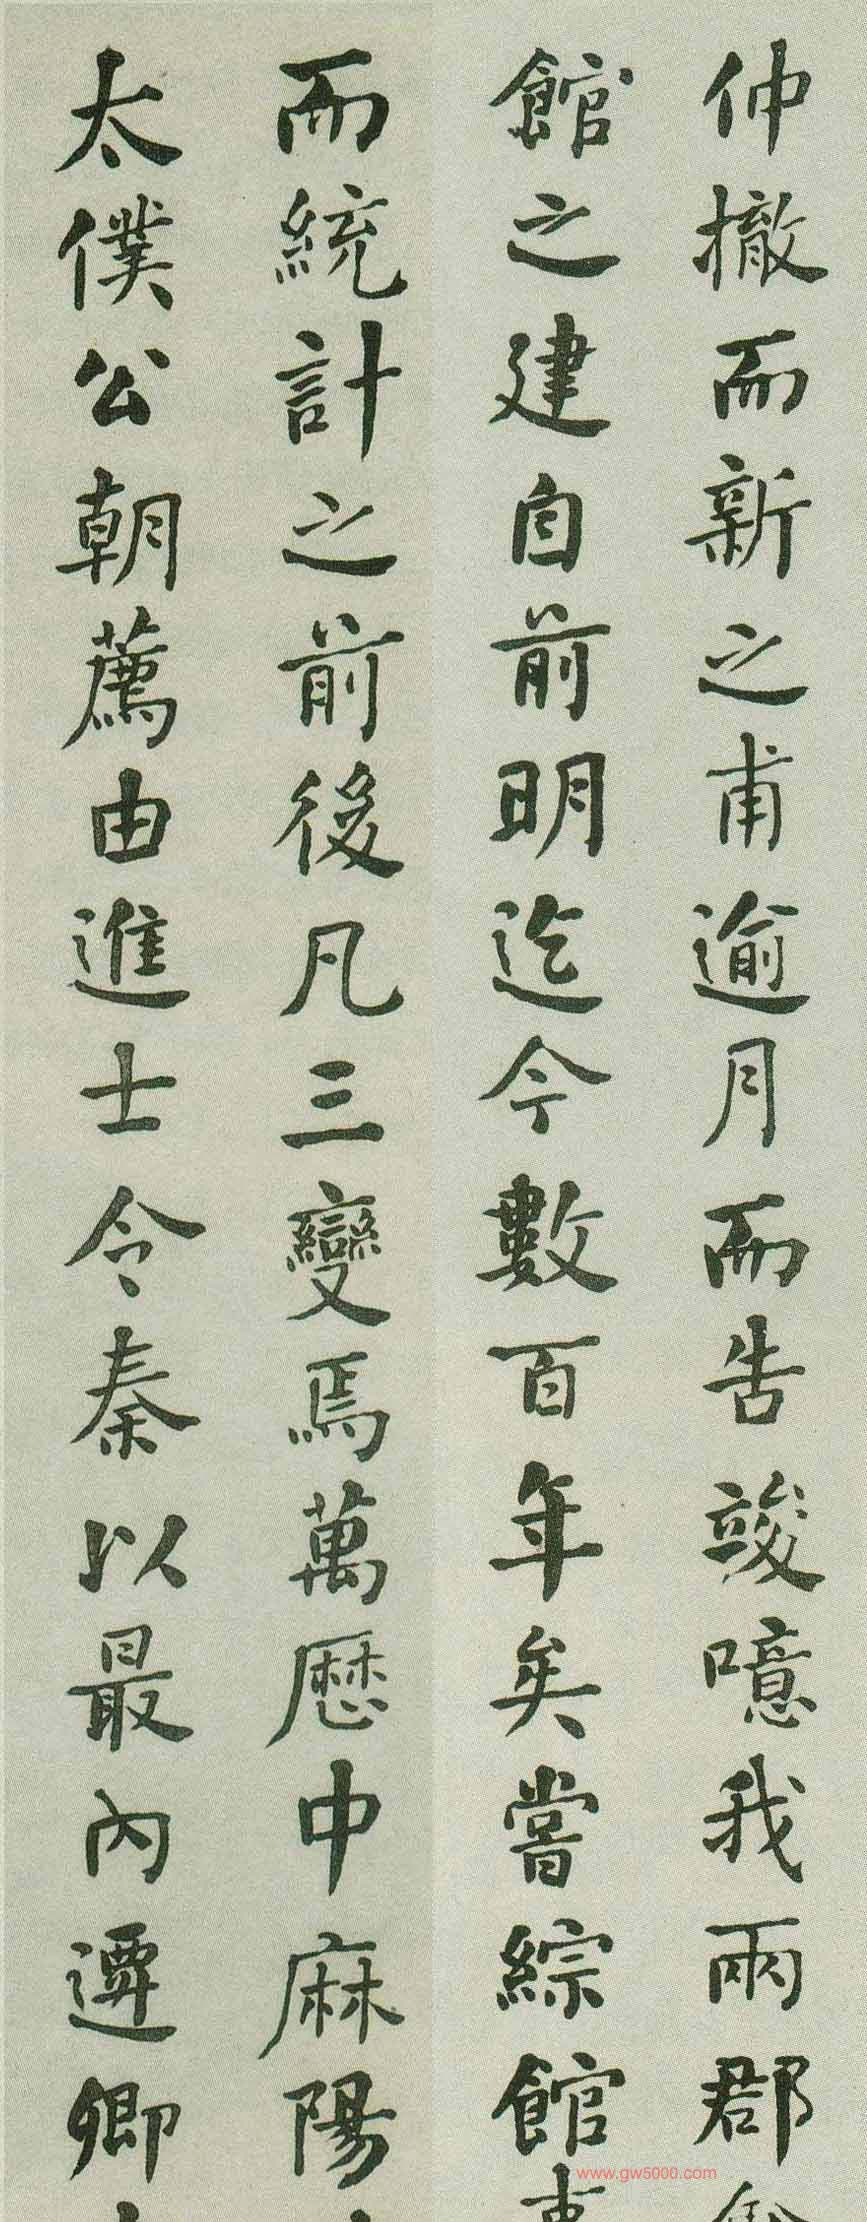 仲撤而新之甫逾月而告竣噫我兩郡
館之建自前明迄今數百年矣嘗綜館
而統計之前後凡三變焉萬厯中麻陽
太僕公朝薦由進士令秦以最內遷卿
www.gw5000.com